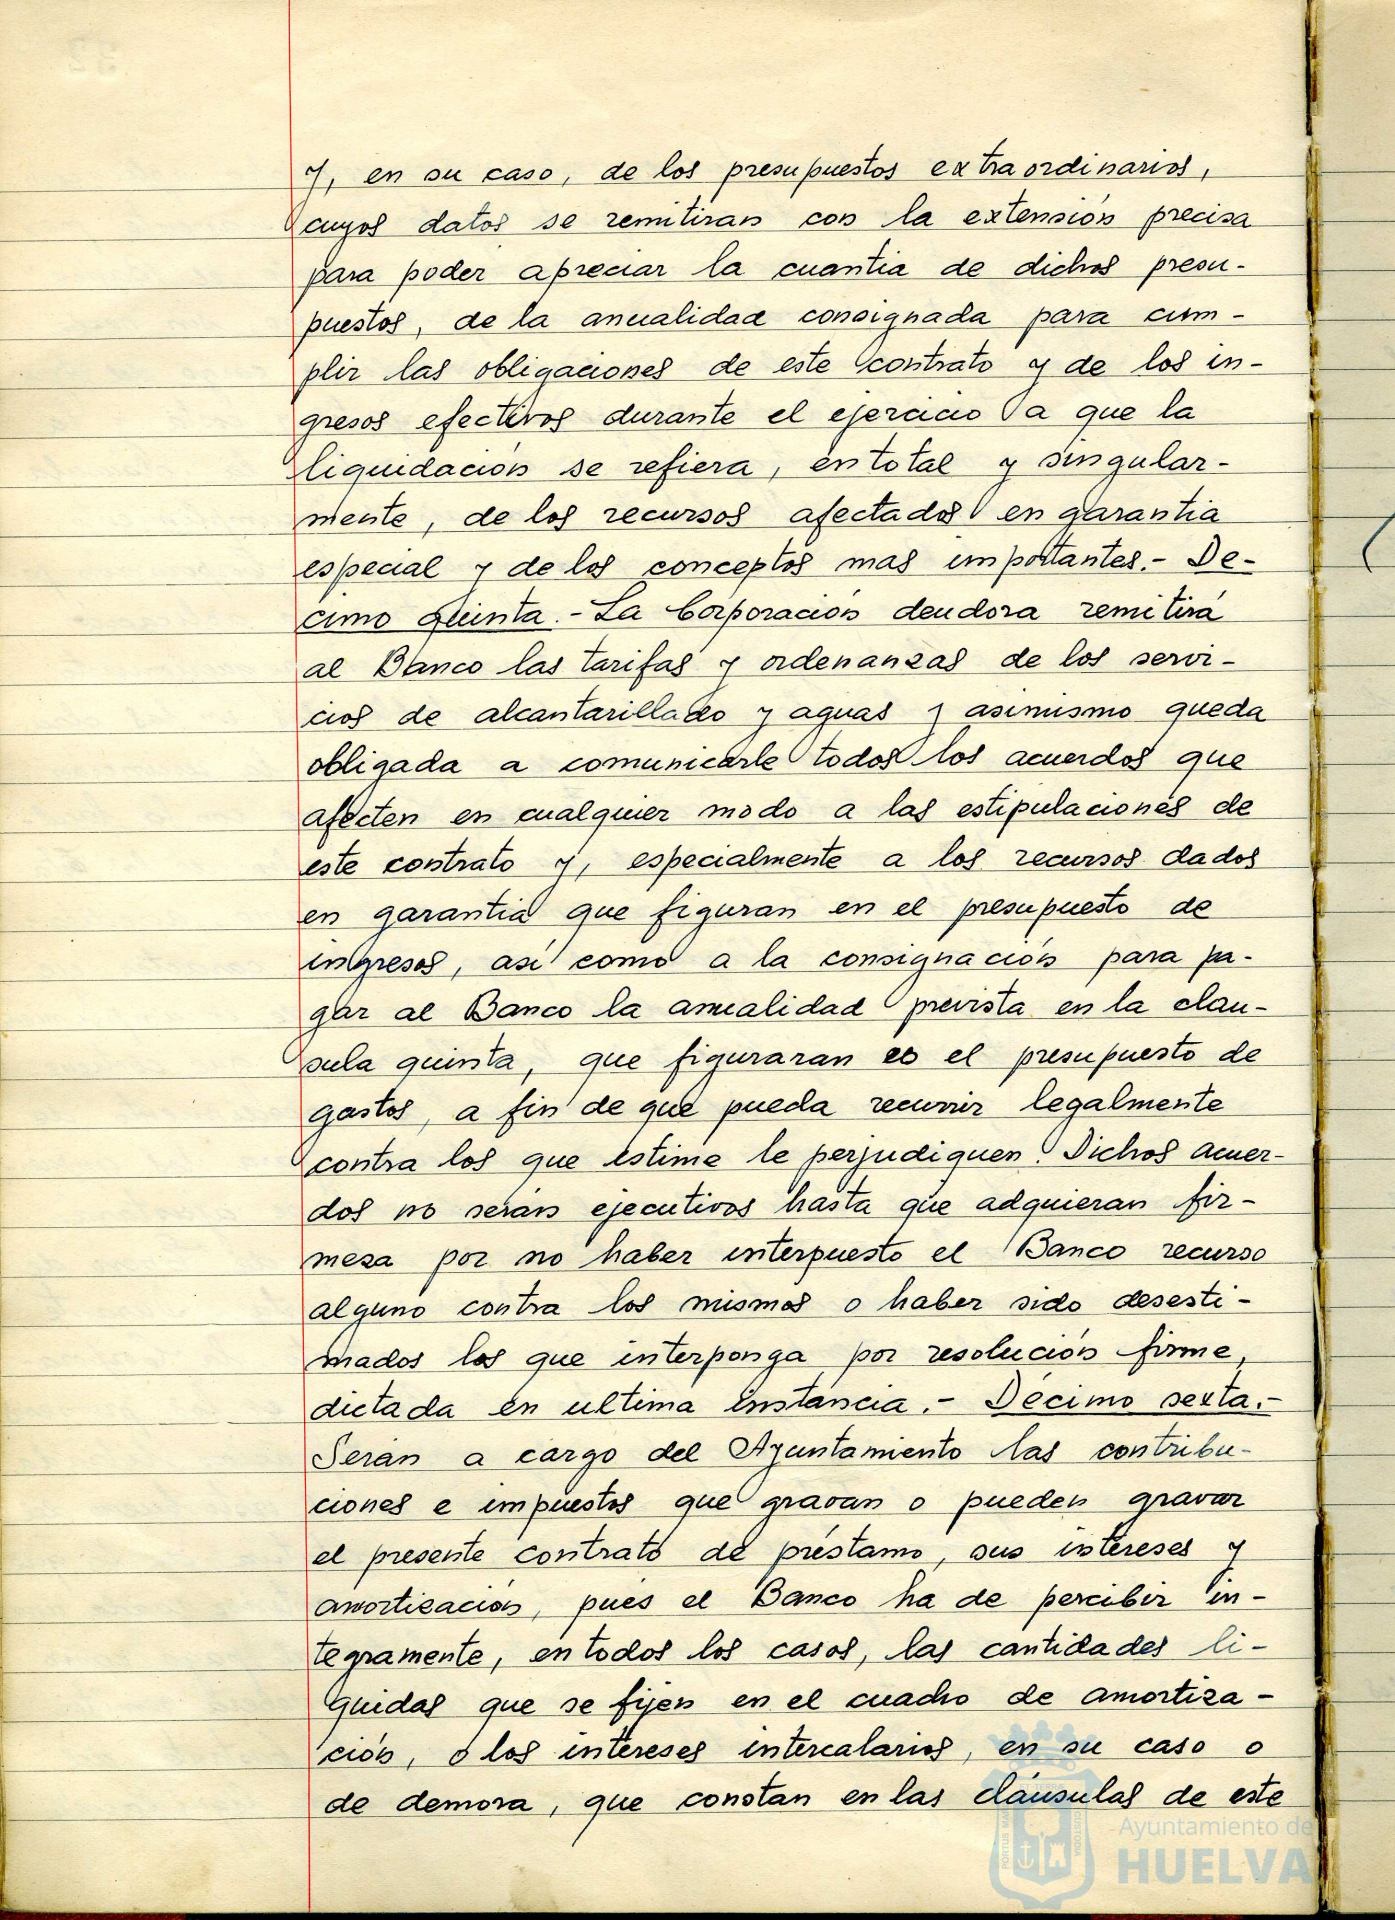 y, en su caso, de los presupuestos extraordinarios,
cuyos datos se remitiran con la extensión precisa
para poder apreciar la cuantia de dichos presu-
puestos, de la anualidad consignada para cum-
plir las obligaciones de este contrato y de los in-
gresos efectivos durante el ejercicio a que la
liquidación se refiera, en total y singular-
mente, de los recursos afectados en garantia
especial y de los conceptos mas importantes.- De-
cimo quinta.- La Corporación deudora remitirá
al Banco las tarifas y ordenanzas de los servi-
cios de alcantarillado y aguas y asimismo queda
obligada a comunicarle todos los acuerdos que
afecten en cualquier modo a las estipulaciones de
este contrato y, especialmente a los recursos dados
en garantia que figuran en el presupuesto de
ingresos, así como a la consignación para pa-
gar al Banco la anualidad prevista en la clau-
sula quinta, que figuraran en el presupuesto de
gastos, a fin de que pueda recurrir legalmente
contra los que estime le perjudiquen. Dichos acuer-
dos no serán ejecutivos hasta que adquieran fir-
meza por no haber interpuesto el Banco recurso
alguno contra los mismos o haber sido desesti-
mados los que interponga por resolución firme,
dictada en ultima instancia.- Décimo sexta.-
Serán a cargo del Ayuntamiento las contribu-
ciones e impuestos que gravan o pueden gravar
el presente contrato de préstamo, sus intereses y
amortización, pues el Banco ha de percibir in-
tegramente, en todos los casos, las cantidades li-
quidas que se fijen en el cuadro de amortiza-
ción, o los intereses intercalarios, en su caso o
de demora, que constan en las cláusulas de este
Ayuntamiento de
HUELVA